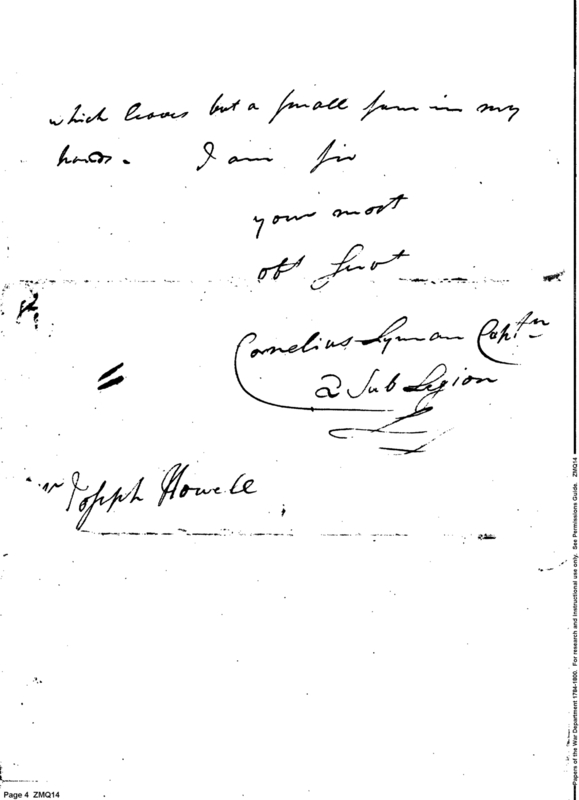 which leaves but a small sum in my
hands. I am sir
your most
obt Servt
Cornelius Lyman Captn
2 Sub Legion
Mr Joseph Howell
Page 4 ZMQ14
Papers of the War Department 1784-1800. For research and instructional use only. See Permissions Guide. ZMQ14